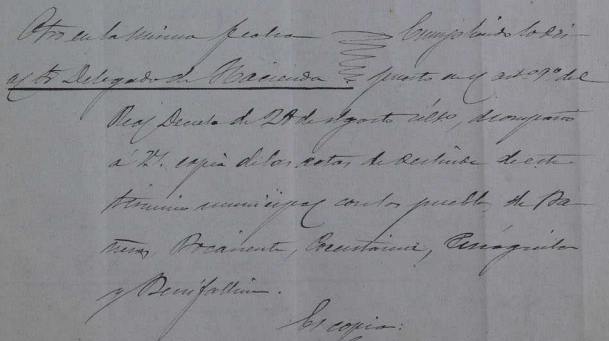 Otro en la misma fecha Cumpliendo lo dis-
al Sr Delegado de Hacienda. puesto en el arto 1º del
Real Decreto de 24 de Agosto último, acompaño
á V.I. copia de las actas de deslinde de este
término municipal con los pueblos de Ba-
ñeres, Bocairente, Cocentaina, Penáguila
y Benifallim.
Es copia: